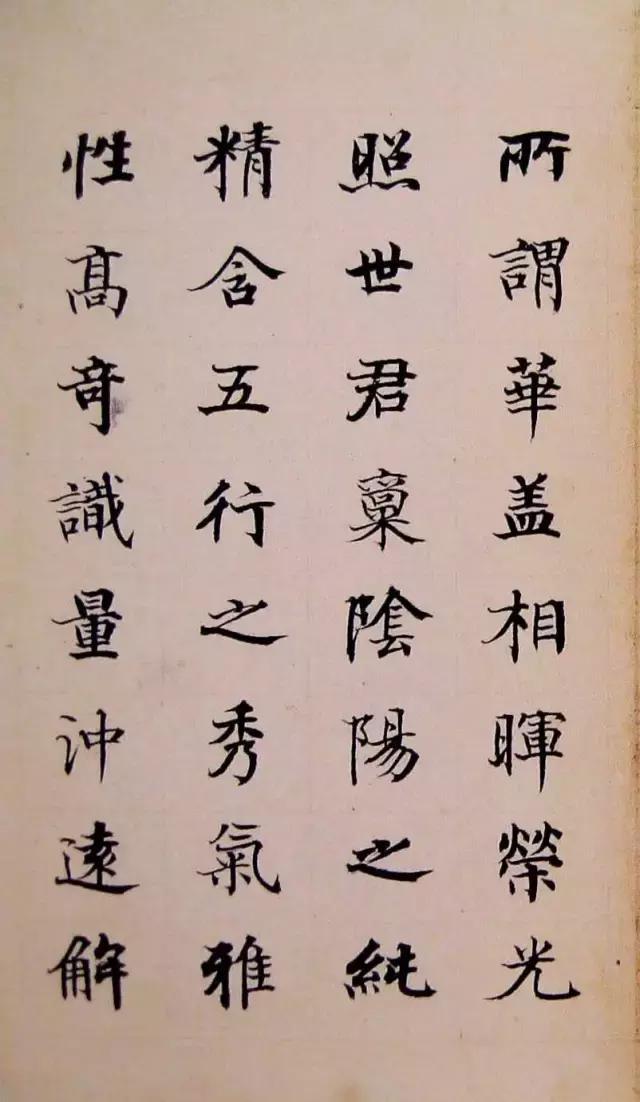 所謂華盖相暉榮光
照世君稟陰陽之純
精含五行之秀氣雅
性高奇識量沖遠解